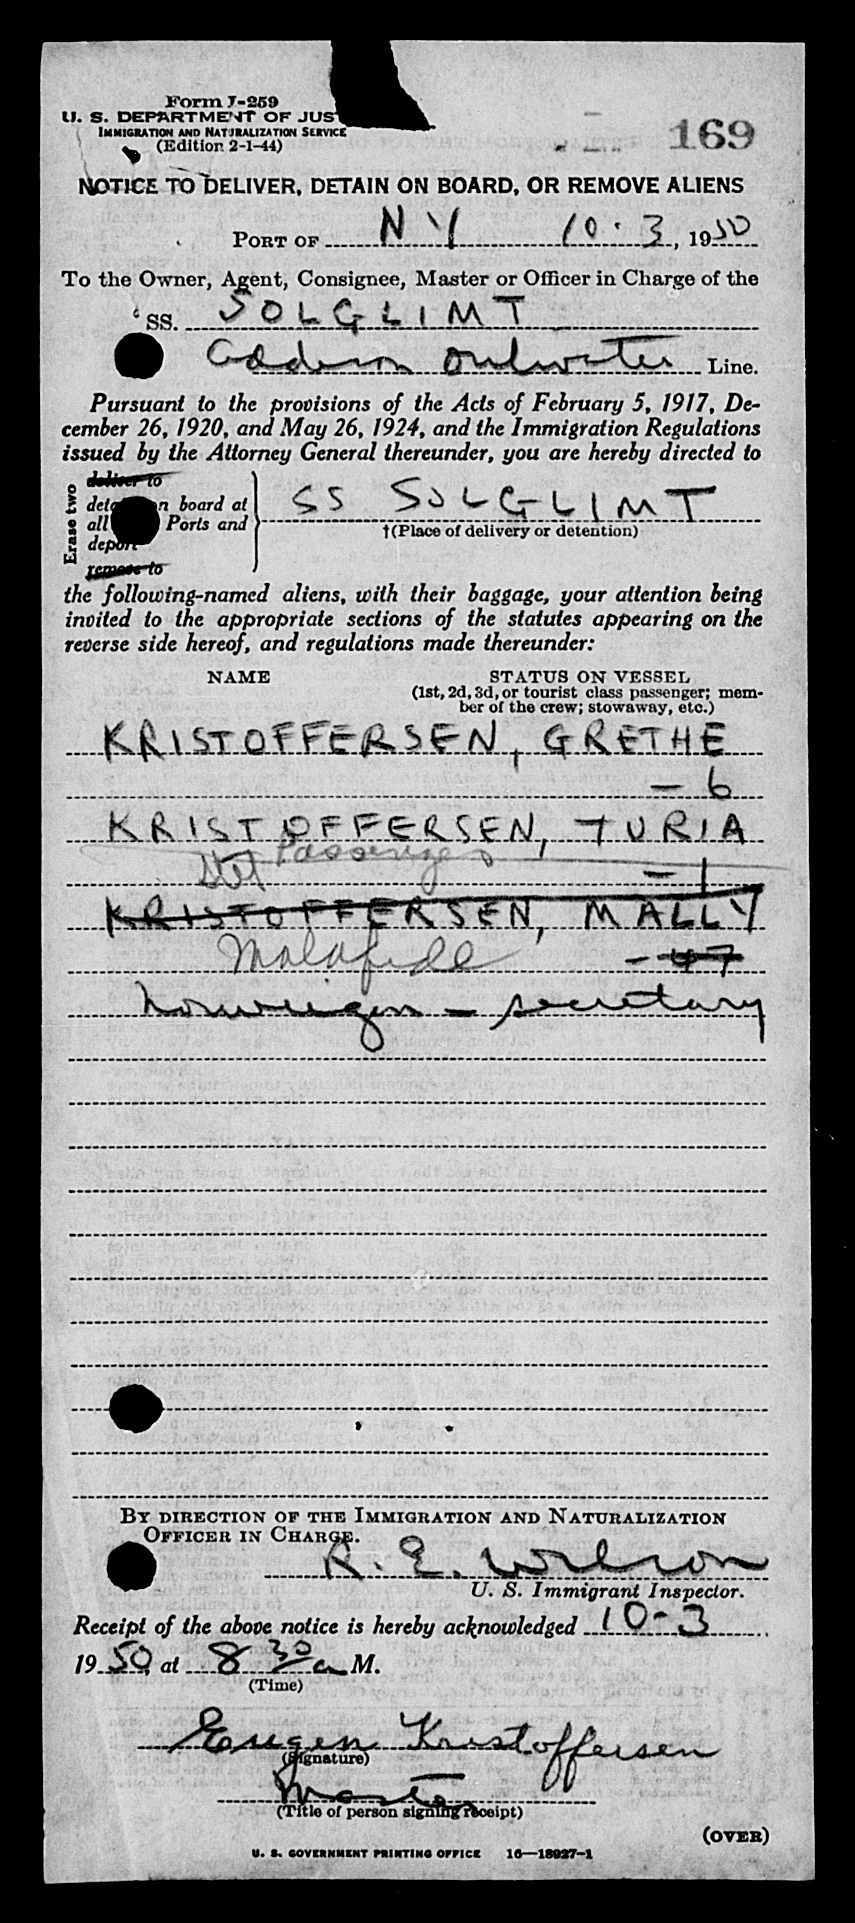 Form I-259
U. S. DEPARTMENT OF JUS
IMMIGRATION AND NATURALIZATION SERVICE
(Edition 2-1-44)
169
NOTICE TO DELIVER, DETAIN ON BOARD, OR REMOVE ALIENS
PORT OF N Y 10·3, 1950
To the Owner, Agent, Consignee, Master or Officer in Charge of the
SS. SOLGLIMT
Line.
Pursuant to the provisions of the Acts of February 5, 1917, De-
cember 26, 1920, and May 26, 1924, and the Immigration Regulations
issued by the Attorney General thereunder, you are hereby directed to
Erase two
deliver to
det n board at
all Ports and
deport
remove to
SS SOLGLIMT
†(Place of delivery or detention)
the following-named aliens, with their baggage, your attention being
invited to the appropriate sections of the statutes appearing on the
reverse side hereof, and regulations made thereunder:
NAME STATUS ON VESSEL
(1st, 2d, 3d, or tourist class passenger; mem-
ber of the crew; stowaway, etc.)
KRISTOFFERSEN, GRETHE
- 6
KRISTOFFERSEN, TURIA
Stet Passenger - 1
KRISTOFFERSEN, MALLY
Malafide - 47
Norweigen - secretary
BY DIRECTION OF THE IMMIGRATION AND NATURALIZATION
OFFICER IN CHARGE.
R. E. Wilson
U. S. Immigrant Inspector.
Receipt of the above notice is hereby acknowledged 10-3
1950, at 8 30 a M.
(Time)
Eugen Kristoffersen
(Signature)
Master
(Title of person signing receipt)
(OVER)
U. S. GOVERNMENT PRINTING OFFICE 16—18927-1